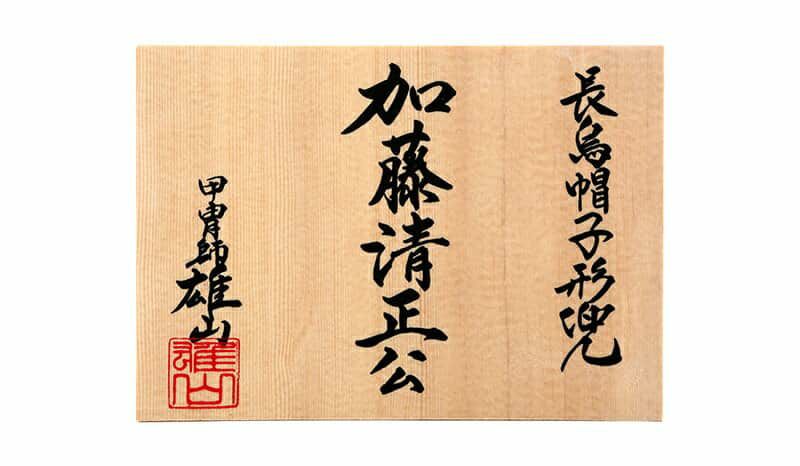 長烏帽子形兜
加藤清正公
甲冑師 雄山
雄山